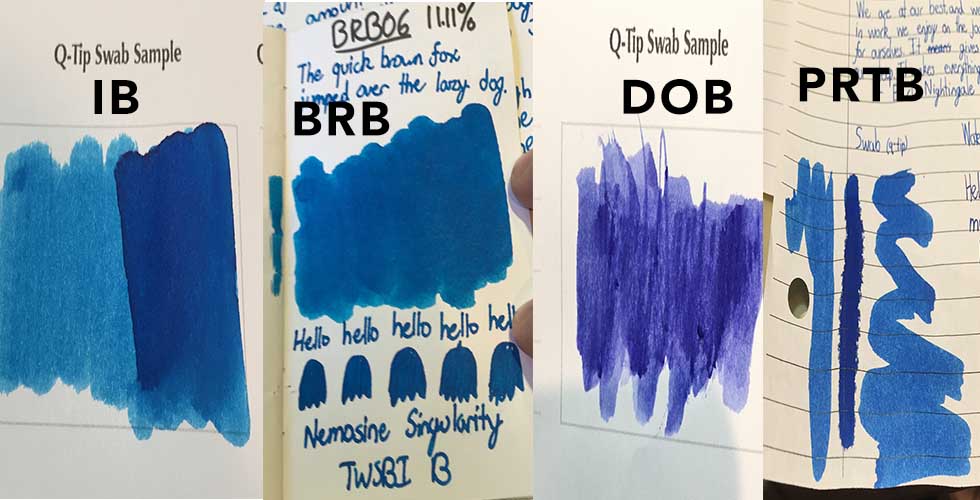 Q-Tip Swab Sample
IB
BRB06 11.11%
The quick brown fox
jumped over the lazy dog.
BRB
Hello hello hello hello hell
Nemosine Singularity
TWSBI B
Q-Tip Swab Sample
DOB
We are at our best, and we
in work we enjoy on the jo
for ourselves. It means gives
everything
Nightingale
PRTB
Swab (q-tip)
Wat
Hel